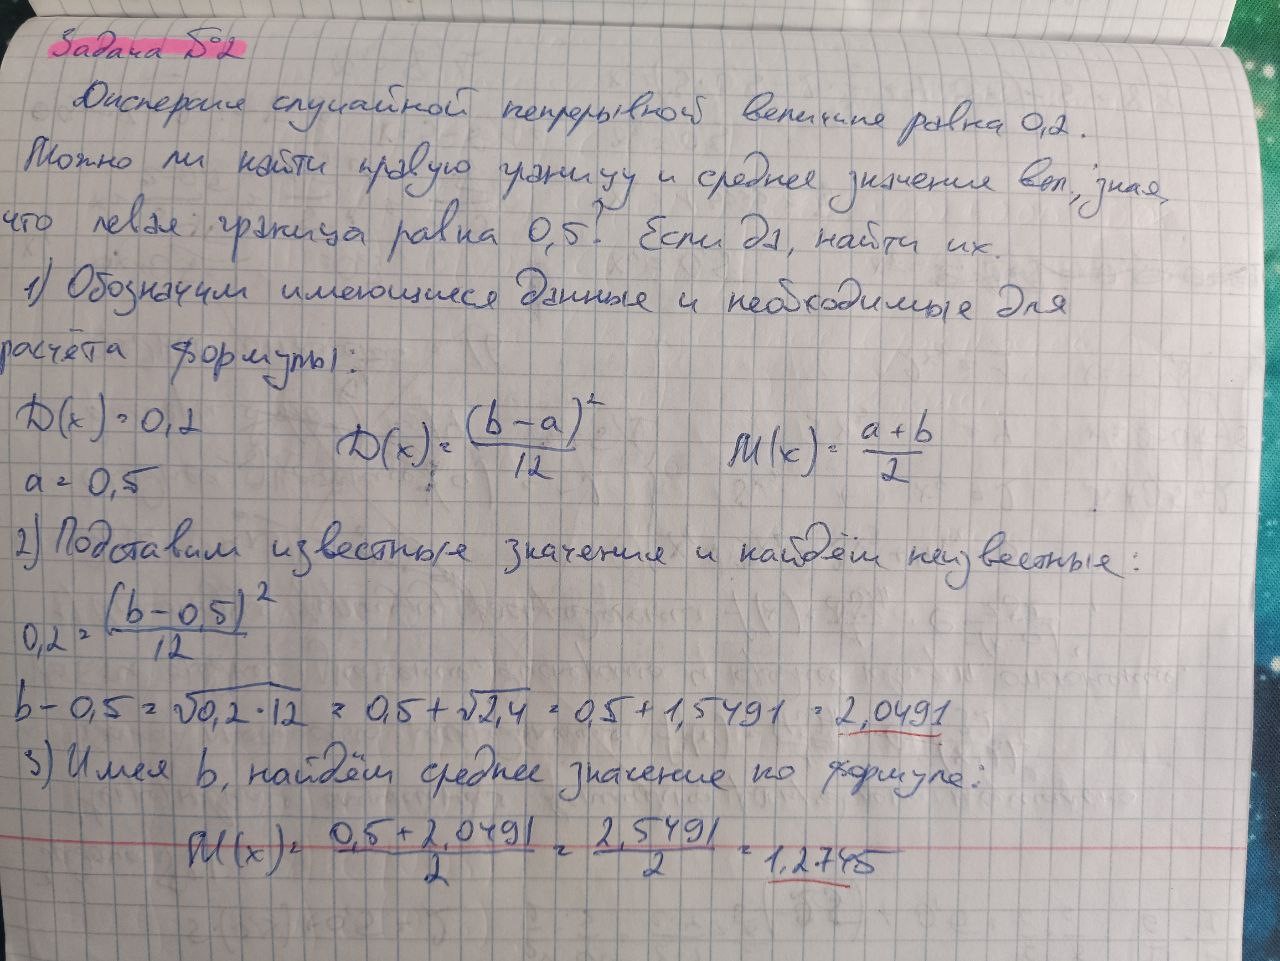 Задача №2
Дисперсия случайной непрерывной величине равна 0,2.
Можно ли найти правую границу и среднее значение вел., зная,
что левая граница равна 0,5? Если да, найти их.
1) Обозначим имеющиеся данные и необходимые для
расчёта формулы:
D(x) = 0,2 D(x) = (b - a)² / 12 M(x) = a + b / 2
a = 0,5
2) Подставим известные значения и найдём неизвестные:
0,2 = (b - 0,5)² / 12
b - 0,5 = √0,2 · 12 = 0,5 + √2,4 = 0,5 + 1,5491 = 2,0491
3) Имея b, найдём среднее значение по формуле:
M(x) = 0,5 + 2,0491 / 2 = 2,5491 / 2 = 1,2745